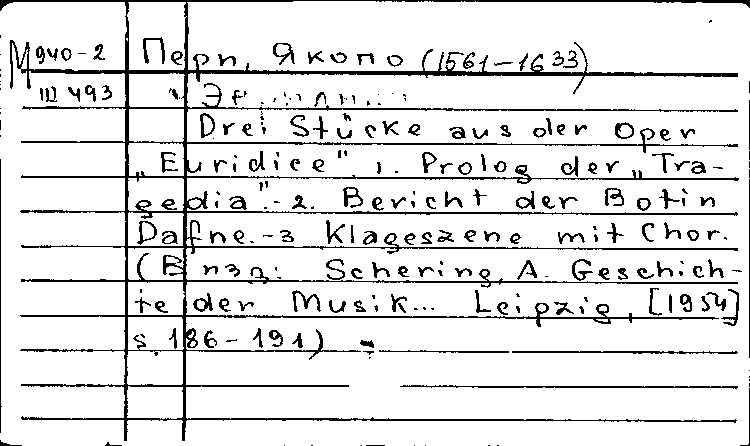 М 940-2 Пери, Якопо (1561-1633)
III 493
Drei Stücke aus der Oper
„Euridice". 1. Prolog der „Tra-
gedia".- 2. Bericht der Botin
Dafne.-3 Klageszene mit Chor.
(В изд: Schering, A. Geschich-
te der Musik... Leipzig, [1954]
s. 186-191) -